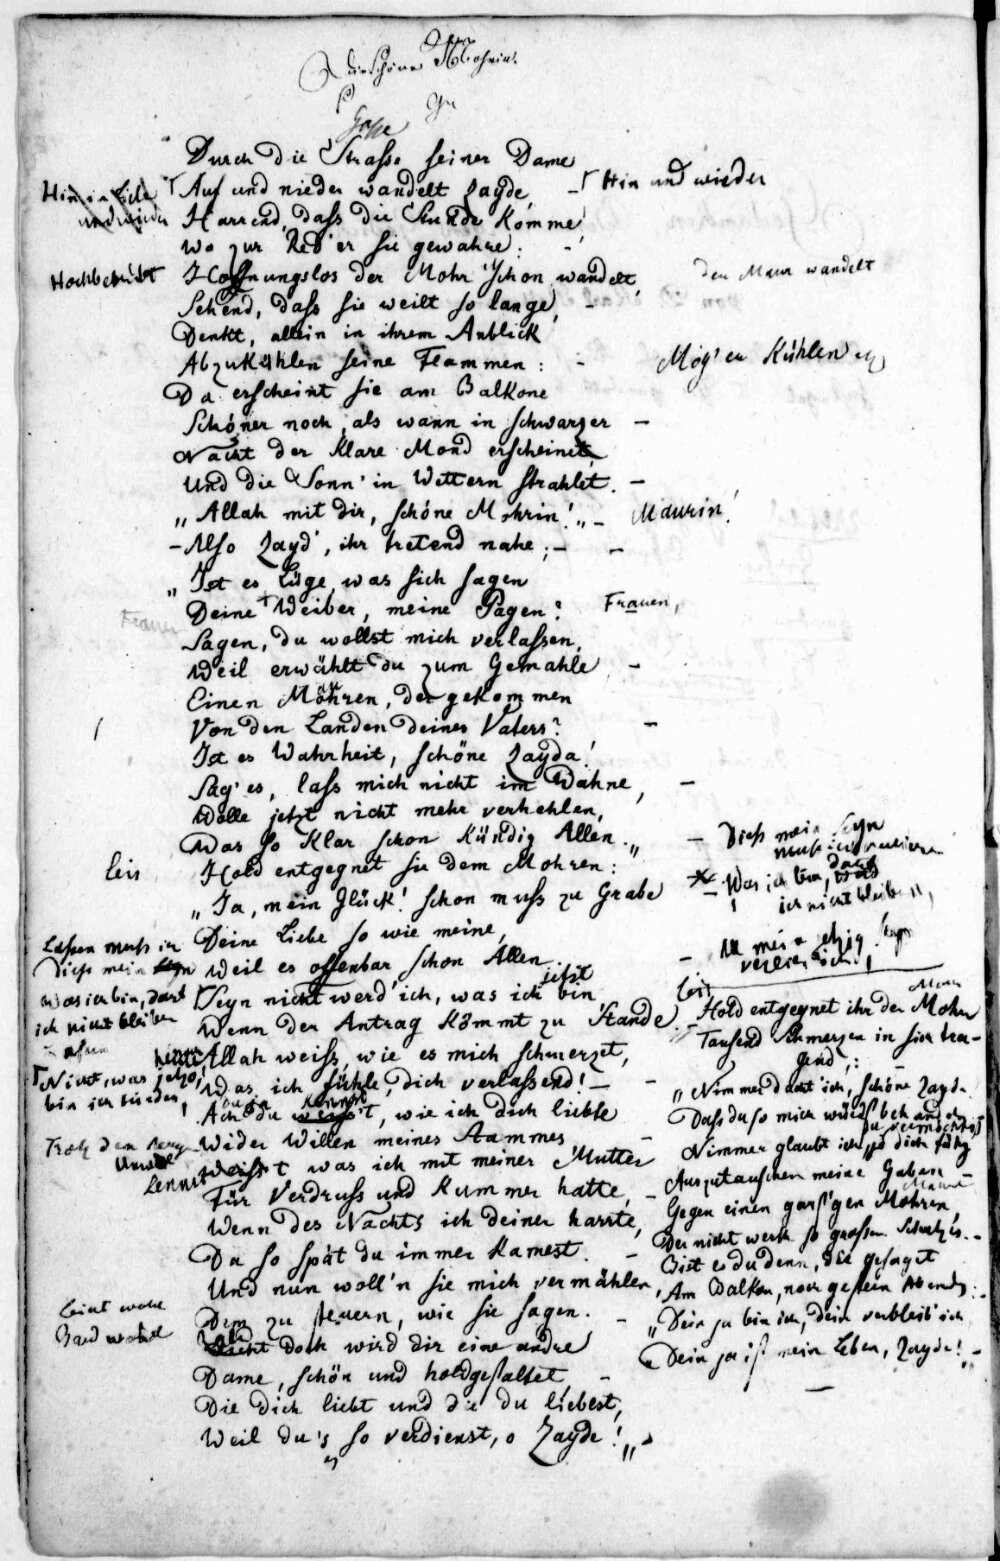 Die schöne Mohrin.
Gasse
Durch die Strasse seiner Dame
Auf und nieder wandelt Zayde, – Hin und wieder
und wieder
Harrend, dass die Stunde komme,
Wo zur Red' er sie gewahre: –
Hochbetrübt
Hoffnungslos der Mohr schon wandelt, der Maur wandelt
Sehend, dass sie weilt so lange, –
Denkt, allein in ihrem Anblick
Abzukühlen seine Flammen: – Mög' er kühlen
Da erscheint sie am Balkone
Schöner noch, als wann in schwarzer –
Nacht der klare Mond erscheinet,
Und die Sonn' in Wettern strahlet. –
„Allah mit dir, schöne Mohrin!„ – Maurin!
– Also Zayd', ihr tretend nahe; – –
„Ist es Lüge, was sich sagen
Deine Weiber, meine Pagen? Frauen,
Sagen, du wollst mich verlassen,
Weil erwählt du zum Gemahle –
Einen Mohren, der gekommen
Von den Landen deines Vaters? –
Ist es Wahrheit, schöne Zayda!
Sag' es, lass mich nicht im Wahne, –
Wolle jetzt nicht mehr verhehlen,
Was so klar schon kündig Allen.„
leis
Hold entgegnet sie dem Mohren:
„Ja, mein Glück! schon muss zu Grabe
Deine Liebe so wie meine,
Weil es offenbar schon Allen
jetzt
Seyn nicht werd' ich, was ich bin,
Wenn der Antrag kömmt zu Stande.
Allah weiss, wie es mich schmerzet,
Was ich fühle, dich verlassend! –
Ach du weiss't, wie ich dich liebte
Wider Willen meines Stammes –
Weiss't was ich mit meiner Mutter
Für Verdruss und Kummer hatte, –
Wenn des Nachts ich deiner harrte,
Da so spät du immer kamest. –
Und nun woll'n sie mich vermählen,
Dem zu steuern, wie sie sagen. –
doch wird dir eine andre
Dame, schön und holdgestaltet –
Die dich liebt und die du liebest,
Weil du's so verdienst, o Zayde!„
Lassen muss ich
Diess mein Seyn
Was ich bin, darf
ich nicht bleiben
Nicht, was jetzo
bin ich
Trotz dem
– Diess mein Seyn
muss ich
– Was ich bin, darf
ich nicht bleiben,
– mein jetzig Seyn
verlier' ich!
leis
Maur
Hold entgegnet ihr der Mohr
Tausend Schmerzen in sich tra-
gend;: –
„Nimmer dacht' ich, schöne Zayda
Dass du so mich würdst behandeln
Nimmer glaubt' ich je dich fähig
Auszutauschen meine Gaben –
Gegen einen garst'gen Mohren,
Der nicht werth so grossen Schatzes. –
Bist es du denn, die gesagt
Am Balkon, noch gestern Abends: –
„Dein ja bin ich, dein verbleib' ich
„Dein ja ist mein Leben, Zayde!„ –